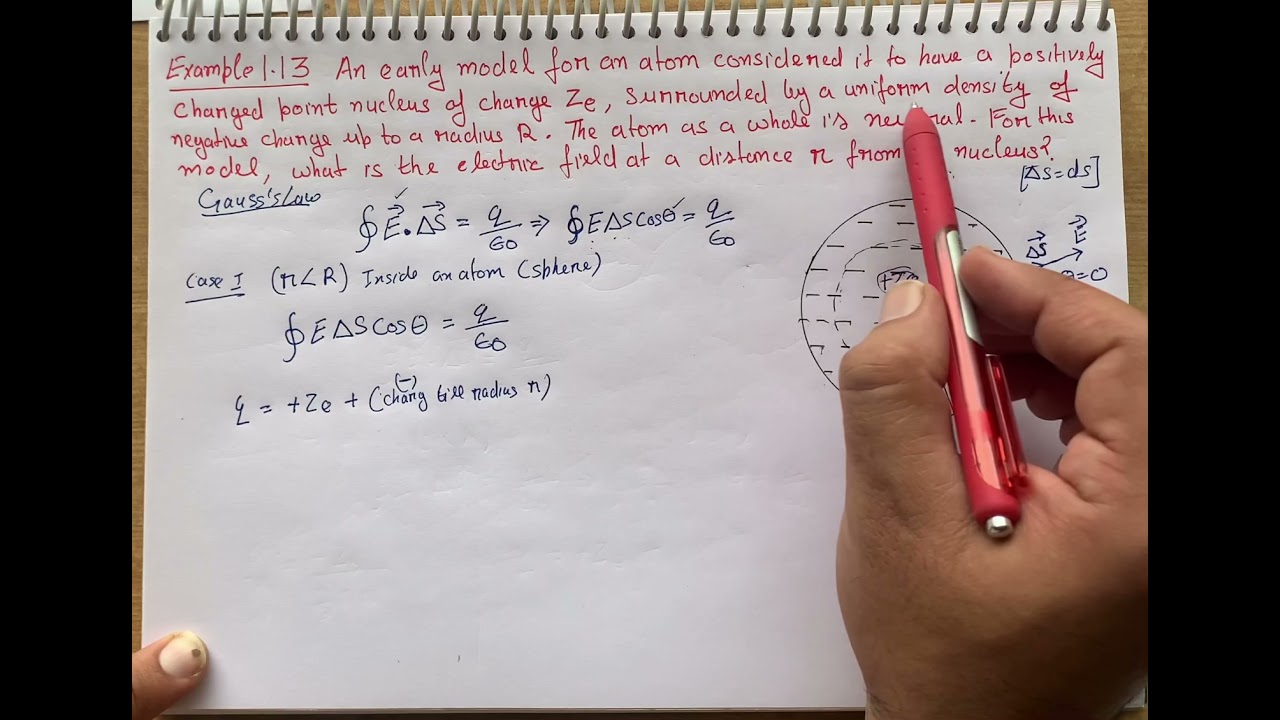 Example 1.13 An early model for an atom considered it to have a positively
changed point nucleus of change Ze, surrounded by a uniform density of
negative change up to a radius R. The atom as a whole is neutral. For this
model, what is the electric field at a distance r from nucleus?
[ΔS = ds]
Gauss's Law
∮E⃗.ΔS⃗ = q/ε0 ⇒ ∮EΔS cosθ = q/ε0
ΔS⃗ E⃗
Case I (r<R) Inside an atom (sphere)
θ=0
∮EΔS cosθ = q/ε0
(-)
q = +Ze + (chang till radius r)